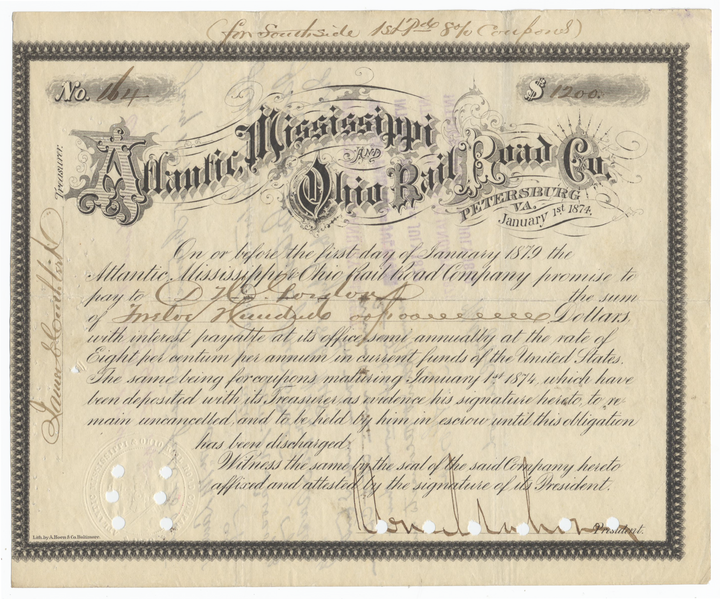 (for Southside 1st Pfd 8% Coupons)
No. 164
$ 1200.
Atlantic, Mississippi
AND
Ohio Rail Road Co.
PETERSBURG
VA.
January 1st 1874.
Treasurer.
On or before the first day of January 1879 the
Atlantic Mississippi & Ohio Rail Road Company promise to
pay to D the sum
of Twelve Hundred 00/100 Dollars,
with interest payable at its office, semi annually at the rate of
Eight per centum per annum in current funds of the United States.
The same being for coupons maturing January 1st 1874, which have
been deposited with its Treasurer as evidence his signature hereto, to re-
main uncancelled, and to be held by him in escrow until this obligation
has been discharged.
Witness the same by the seal of the said Company hereto
affixed and attested by the signature of its President.
President.
Lith. by A. Hoen & Co. Baltimore.